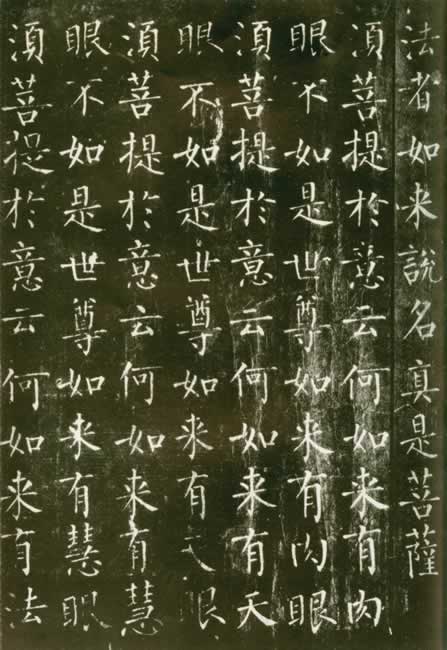 法者如来說名真是菩薩
須菩提於意云何如来有肉
眼不如是世尊如来有肉眼
須菩提於意云何如来有天
眼不如是世尊如来有天眼
須菩提於意云何如来有慧
眼不如是世尊如来有慧眼
須菩提於意云何如来有法